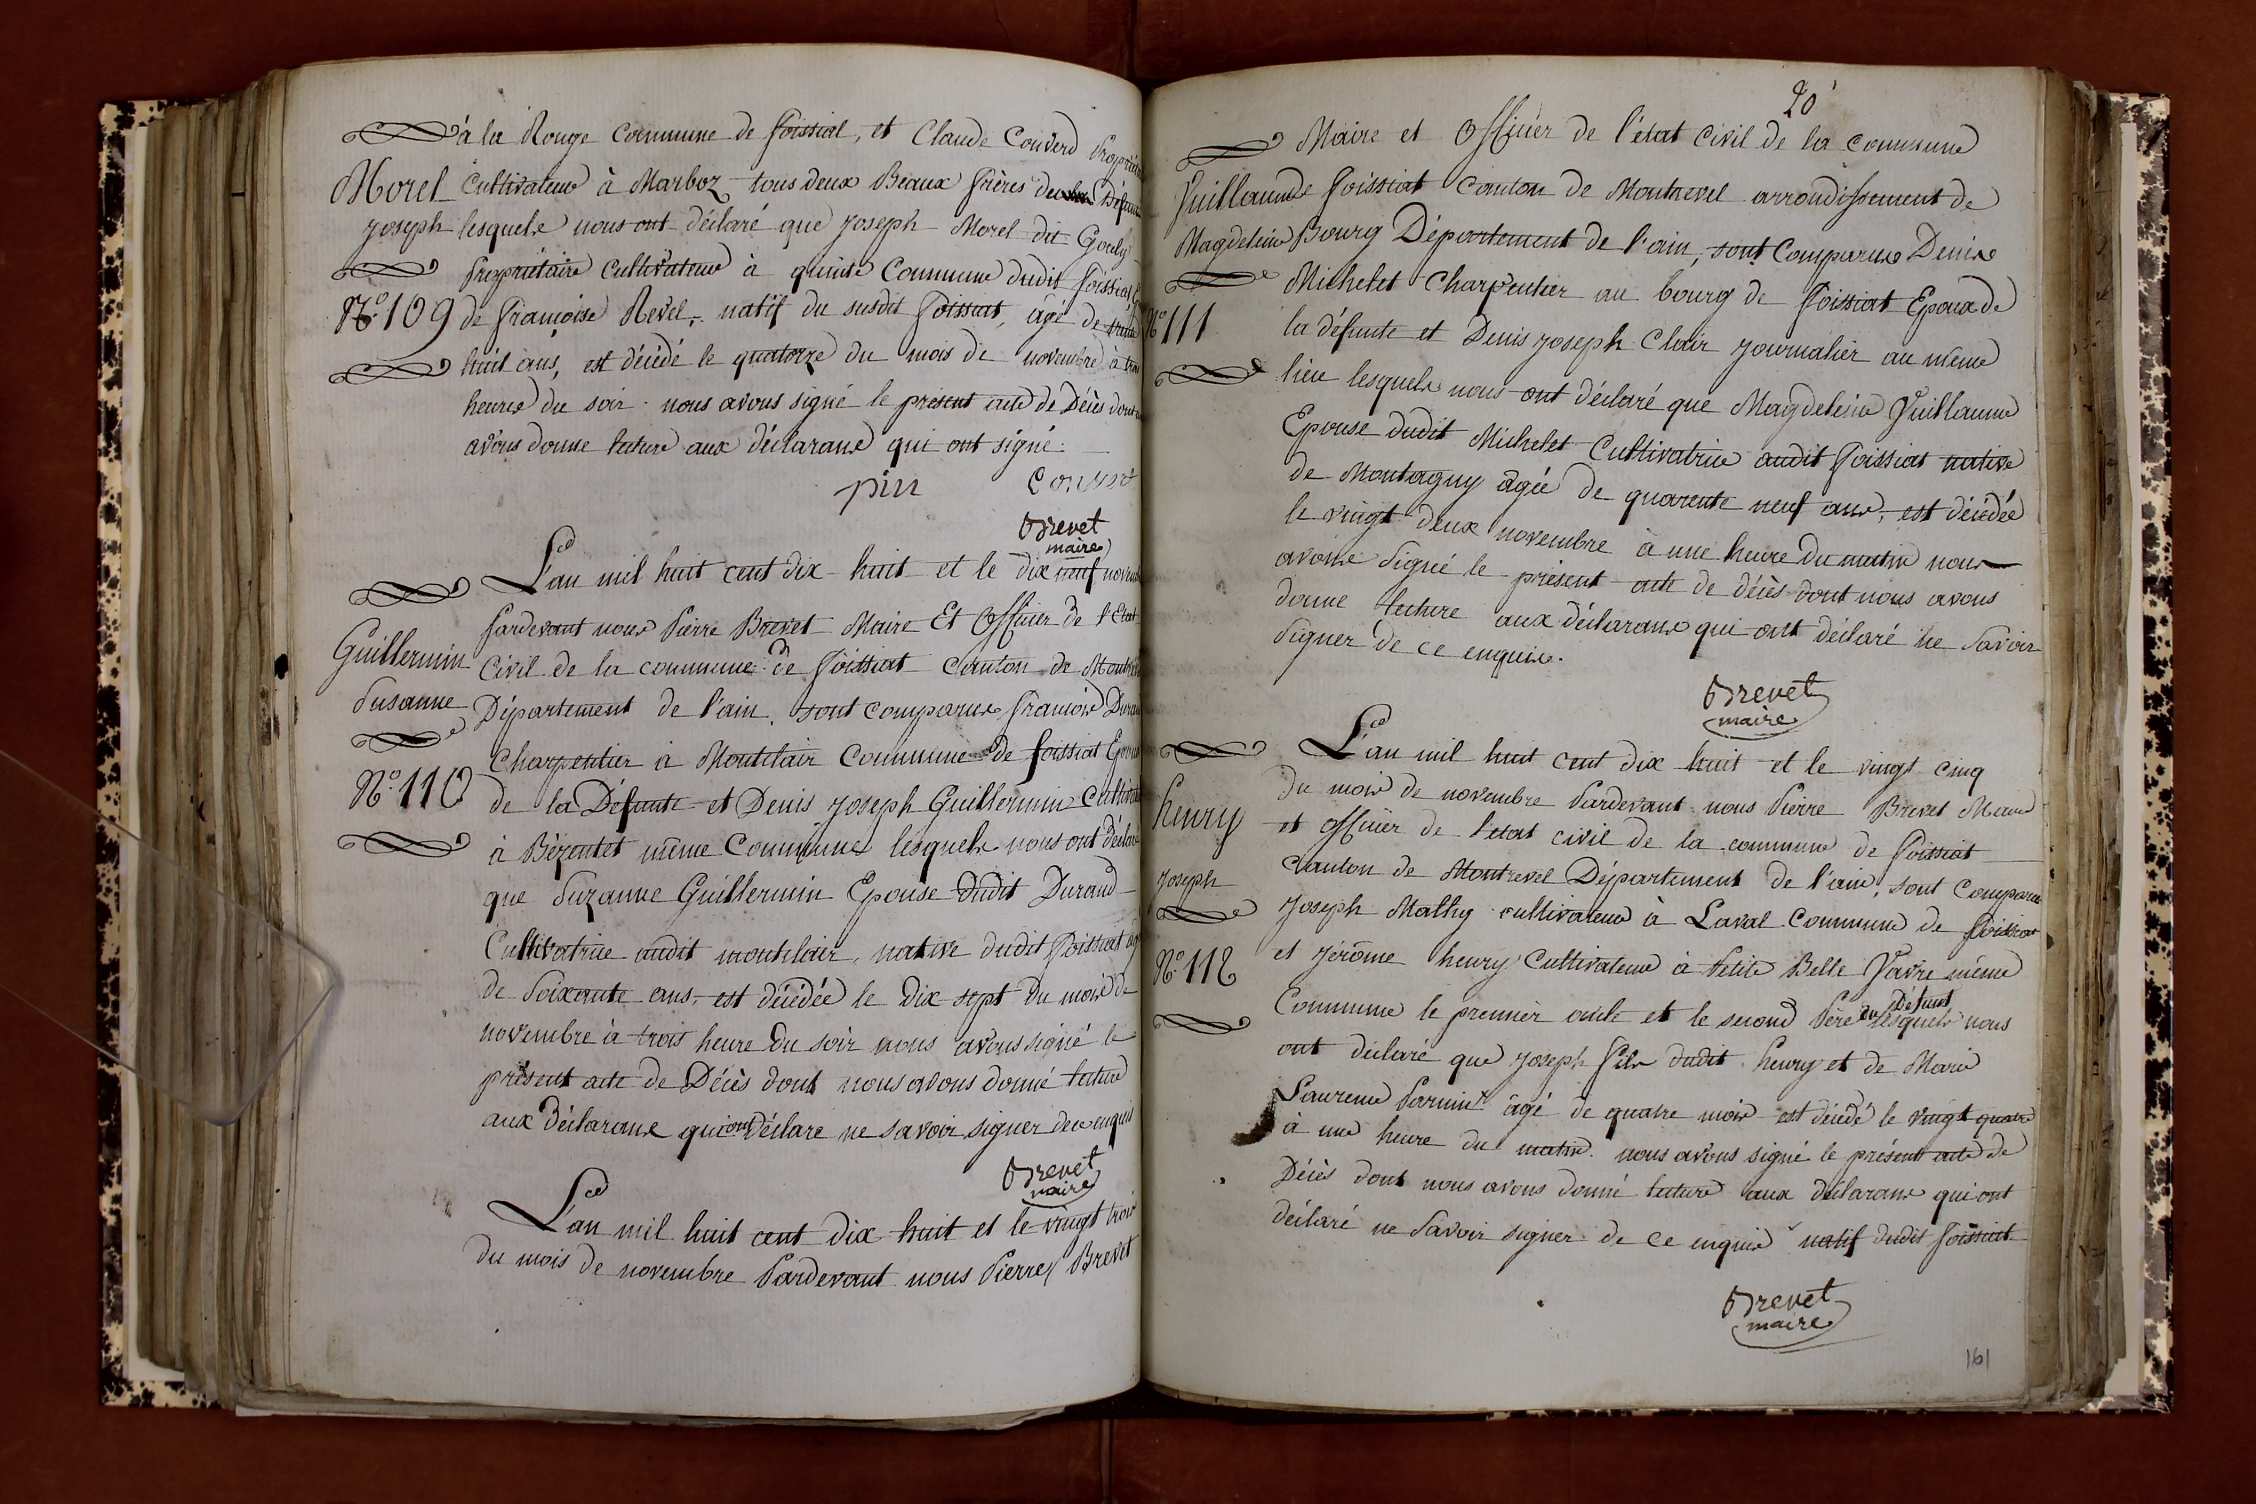 à la Rouge commune de foissiat, et Claude Couverd
Morel
Cultivateur à Marboz tous deux Beaux frères du
Joseph
lesquels nous ont déclaré que joseph Morel dit
propriétaire cultivateur à commune dudit foissiat
N.° 109
de françoise Revel, natif du susdit foissiat, âgé de
huit ans, est décédé le quatorze du mois de novembre à trois
heures du soir. nous avons signé le présent acte de Décès dont
avons donné lecture aux déclarans qui ont signé
pin Couverd
Brevet
maire
L'an mil huit cent dix huit et le dix neuf
pardevant nous Pierre Brevet Maire Et Officier de l'Etat
Guillermin
Civil de la commune de foissiat canton de
Susanne
Département de l'ain, sont comparus françois
Charpentier à Montclair Commune de foissiat
N.° 110
de la Défunte et Denis joseph Guillermin
à même Commune lesquels nous ont
que Suzanne Guillermin Epouse dudit Durand
Cultivatrice audit montclair, native dudit foissiat
de Soixante ans, est décédée le dix sept du mois de
novembre à trois heure du soir nous avons signé le
présent acte de Décès dont nous avons donné lecture
aux Déclarans qui ont déclaré ne savoir signer de ce enquis
Brevet
maire
L'an mil huit cent dix huit et le vingt trois
du mois de novembre Pardevant nous Pierre Brevet
20
Maire et Officier de l'état civil de la commune
Vuillaume
de foissiat canton de Montrevel arrondissement de
Magdeleine
Bourg Département de l'ain, sont Comparus Denis
Michelet Charpentier au bourg de foissiat Epoux de
N.° 111
la défunte et Denis joseph Clair journalier au même
lieu lesquels nous ont déclaré que Magdeleine Vuillaume
Epouse dudit Michelet Cultivatrice audit foissiat native
de Montagny âgée de quarente neuf ans, est décédée
le vingt deux novembre à une heure du matin nous
avons Signé le présent acte de décès dont nous avons
donné lecture aux déclarans qui ont déclaré ne Savoir
Signer de ce enquis.
Brevet
maire
L'an mil huit cent dix huit et le vingt cinq
du mois de novembre Pardevant nous Pierre Brevet Maire
henry
et officier de l'etat civil de la commune de foissiat
Canton de Montrevel Département de l'ain, sont comparus
joseph
joseph Mathy cultivateur à Laval Commune de foissiat
N.° 112
et jérôme henry Cultivateur à Petite Belle Vavre même
Commune le premier oncle et le second Père du Défunt lesquels nous
ont déclaré que joseph fils dudit henry et de Marie
Laurence âgé de quatre mois est décédé le vingt quatre
à une heure du matin. nous avons signé le présent acte de
Décès dont nous avons donné lecture aux déclarans qui ont
déclaré ne Savoir signer de ce enquis natif dudit foissiat
Brevet
maire
161